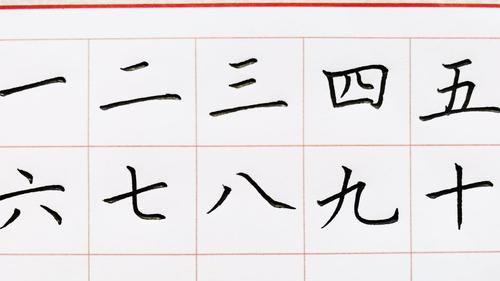 一 二 三 四 五
六 七 八 九 十